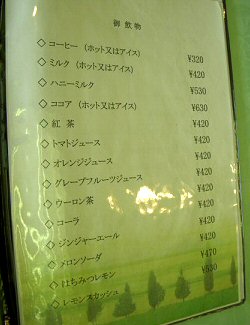 御飲物
◇コーヒー（ホット又はアイス） ¥320
◇ミルク（ホット又はアイス） ¥420
◇ハニーミルク ¥530
◇ココア（ホット又はアイス） ¥630
◇紅茶 ¥420
◇トマトジュース ¥420
◇オレンジジュース ¥420
◇グレープフルーツジュース ¥420
◇ウーロン茶 ¥420
◇コーラ ¥420
◇ジンジャーエール ¥420
◇メロンソーダ ¥420
◇はちみつレモン ¥470
◇レモンスカッシュ ¥530